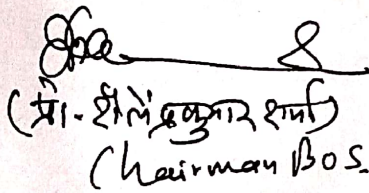 (प्रो. शैलेंद्रकुमार शर्मा)
(Chairman BOS.